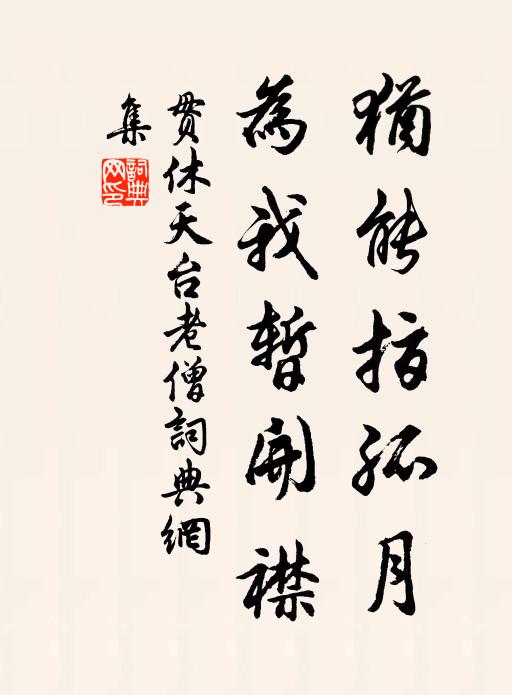 猶能指孤月
為我暫開襟
貫休天台老僧詞典網
集
詞典網印